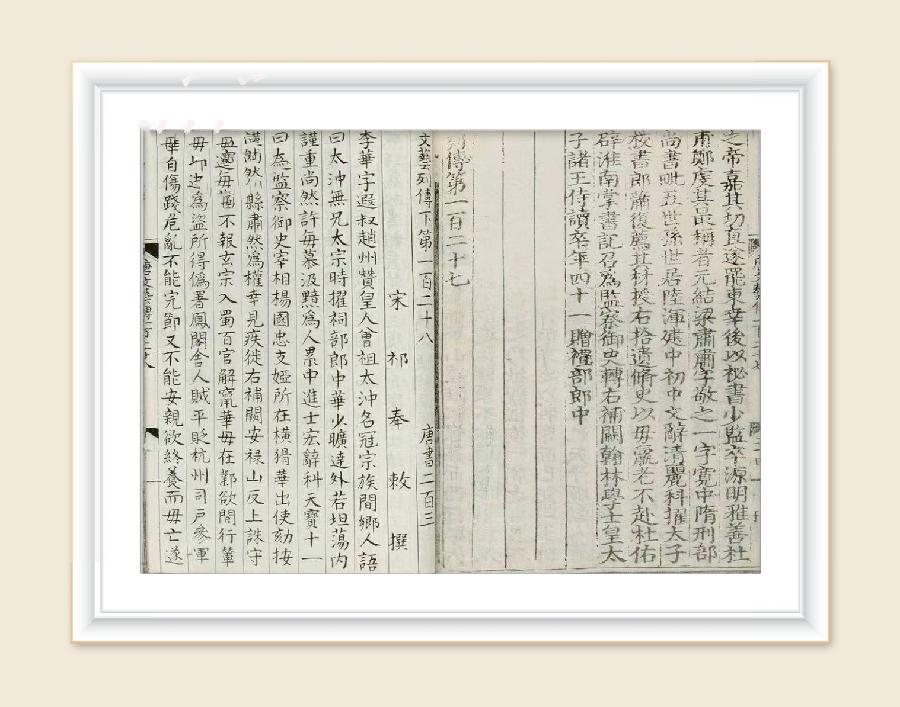 之帝嘉其切直遂罷東幸後以祕書少監卒源明雅善杜
甫鄭虔其最稱者元結梁肅肅字敬之一字寬中隋刑部
尚書毗五世孫世居陸渾建中初中文辭清麗科擢太子
校書郎蕭復薦其材授右拾遺脩史以毋羸老不赴杜佑
辟淮南掌書記召爲監察御史轉右補闕翰林學士皇太
子諸王侍讀卒年四十一贈禮部郎中
列傳第一百二十七
文藝列傳下第一百二十八 唐書二百三
宋祁奉敕撰
李華字遐叔趙州贊皇人曾祖太沖名冠宗族間鄉人語
曰太沖無兄太宗時擢祠部郎中華少曠達外若坦蕩内
謹重尚然許每慕汲黯爲人累中進士宏辭科天寶十一
曰爲監察御史宰相楊國忠支婭所在橫猾華出使劾按
縣肅然爲權幸見疾徙右補闕安祿山反上誅守
不報玄宗入蜀百官解竄華毋在鄴欲間行輦
毋以逃爲盜所得僞署鳳閣舍人賊平貶杭州司戶參軍
華自傷踐危亂不能完節又不能安親欲終養而毋亡遂